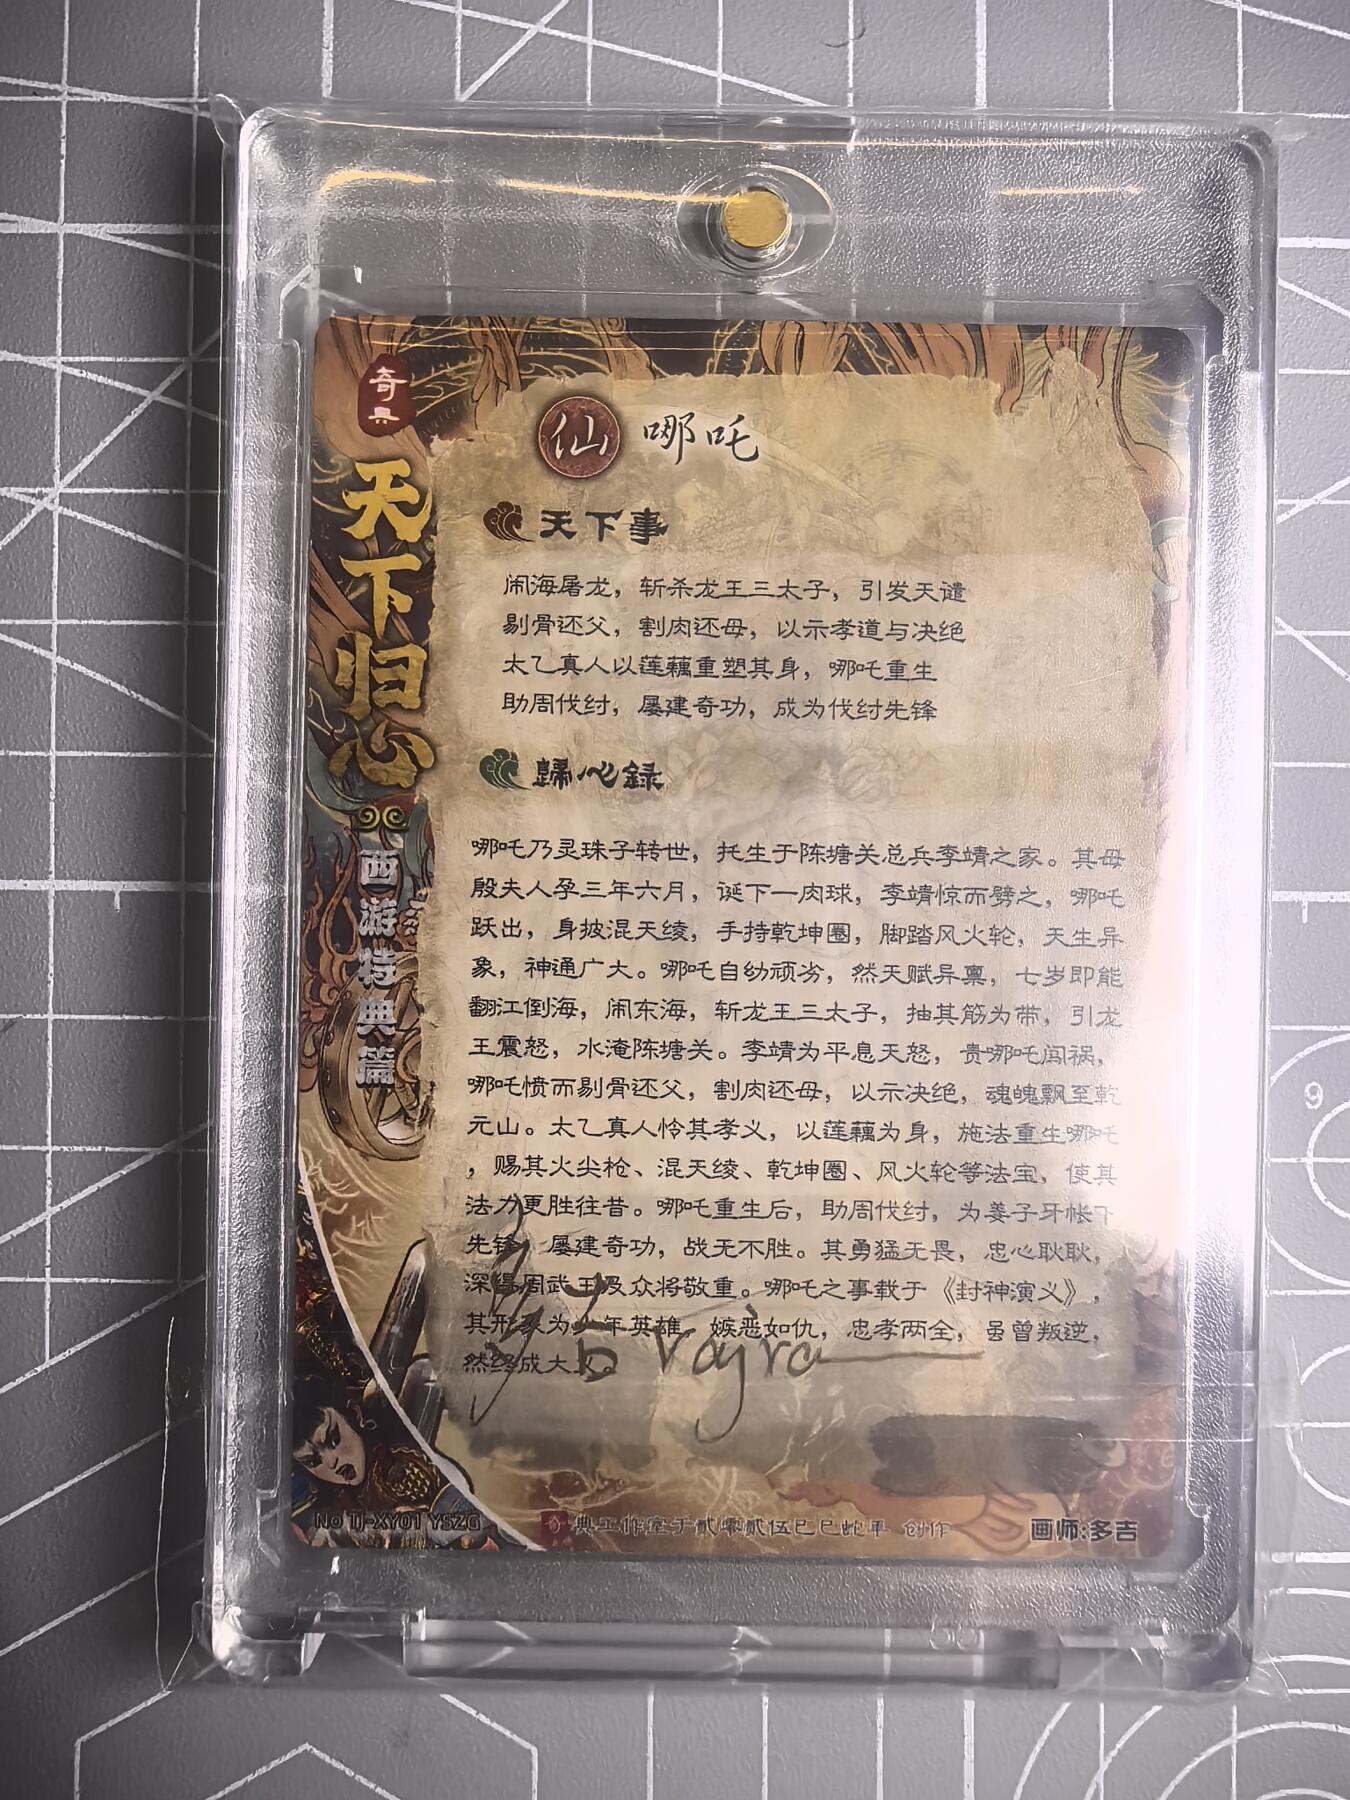 奇典
天下归心
西游特典篇
仙 哪吒
天下事
闹海屠龙，斩杀龙王三太子，引发天谴
剔骨还父，割肉还母，以示孝道与决绝
太乙真人以莲藕重塑其身，哪吒重生
助周伐纣，屡建奇功，成为伐纣先锋
歸心録
哪吒乃灵珠子转世，托生于陈塘关总兵李靖之家。其母
殷夫人孕三年六月，诞下一肉球，李靖惊而劈之，哪吒
跃出，身披混天绫，手持乾坤圈，脚踏风火轮，天生异
象，神通广大。哪吒自幼顽劣，然天赋异禀，七岁即能
翻江倒海，闹东海，斩龙王三太子，抽其筋为带，引龙
王震怒，水淹陈塘关。李靖为平息天怒，责哪吒闯祸，
哪吒愤而剔骨还父，割肉还母，以示决绝，魂魄飘至乾
元山。太乙真人怜其孝义，以莲藕为身，施法重生哪吒
，赐其火尖枪、混天绫、乾坤圈、风火轮等法宝，使其
法力更胜往昔。哪吒重生后，助周伐纣，为姜子牙帐下
先锋，屡建奇功，战无不胜。其勇猛无畏，忠心耿耿，
深得周武王及众将敬重。哪吒之事载于《封神演义》，
其形象为少年英雄，嫉恶如仇，忠孝两全，虽曾叛逆，
然终成大义。
多吉 Vajra
No TJ-XY01 YSZG
奇典工作室于贰零贰伍巳巳蛇年 创作
画师:多吉
9